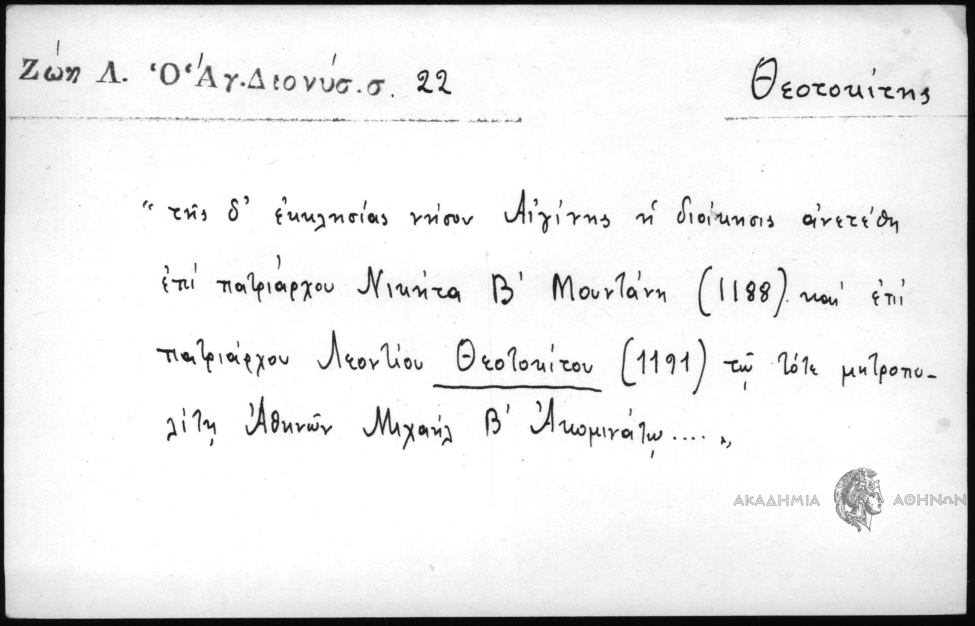 Ζώη Λ. Ὁ Ἅγ. Διονύσ. σ. 22
Θεοτοκίτης
“ τῆς δ' ἐκκλησίας νήσου Αἰγίνης ἡ διοίκησις ἀνετέθη
ἐπί πατριάρχου Νικήτα Β' Μουντάνη (1188) καί ἐπί
πατριάρχου Λεοντίου Θεοτοκίτου (1191) τῷ τότε μητροπο-
λίτῃ Ἀθηνῶν Μιχαήλ Β' Ἀκομινάτῳ .... „
ΑΚΑΔΗΜΙΑ ΑΘΗΝΩΝ